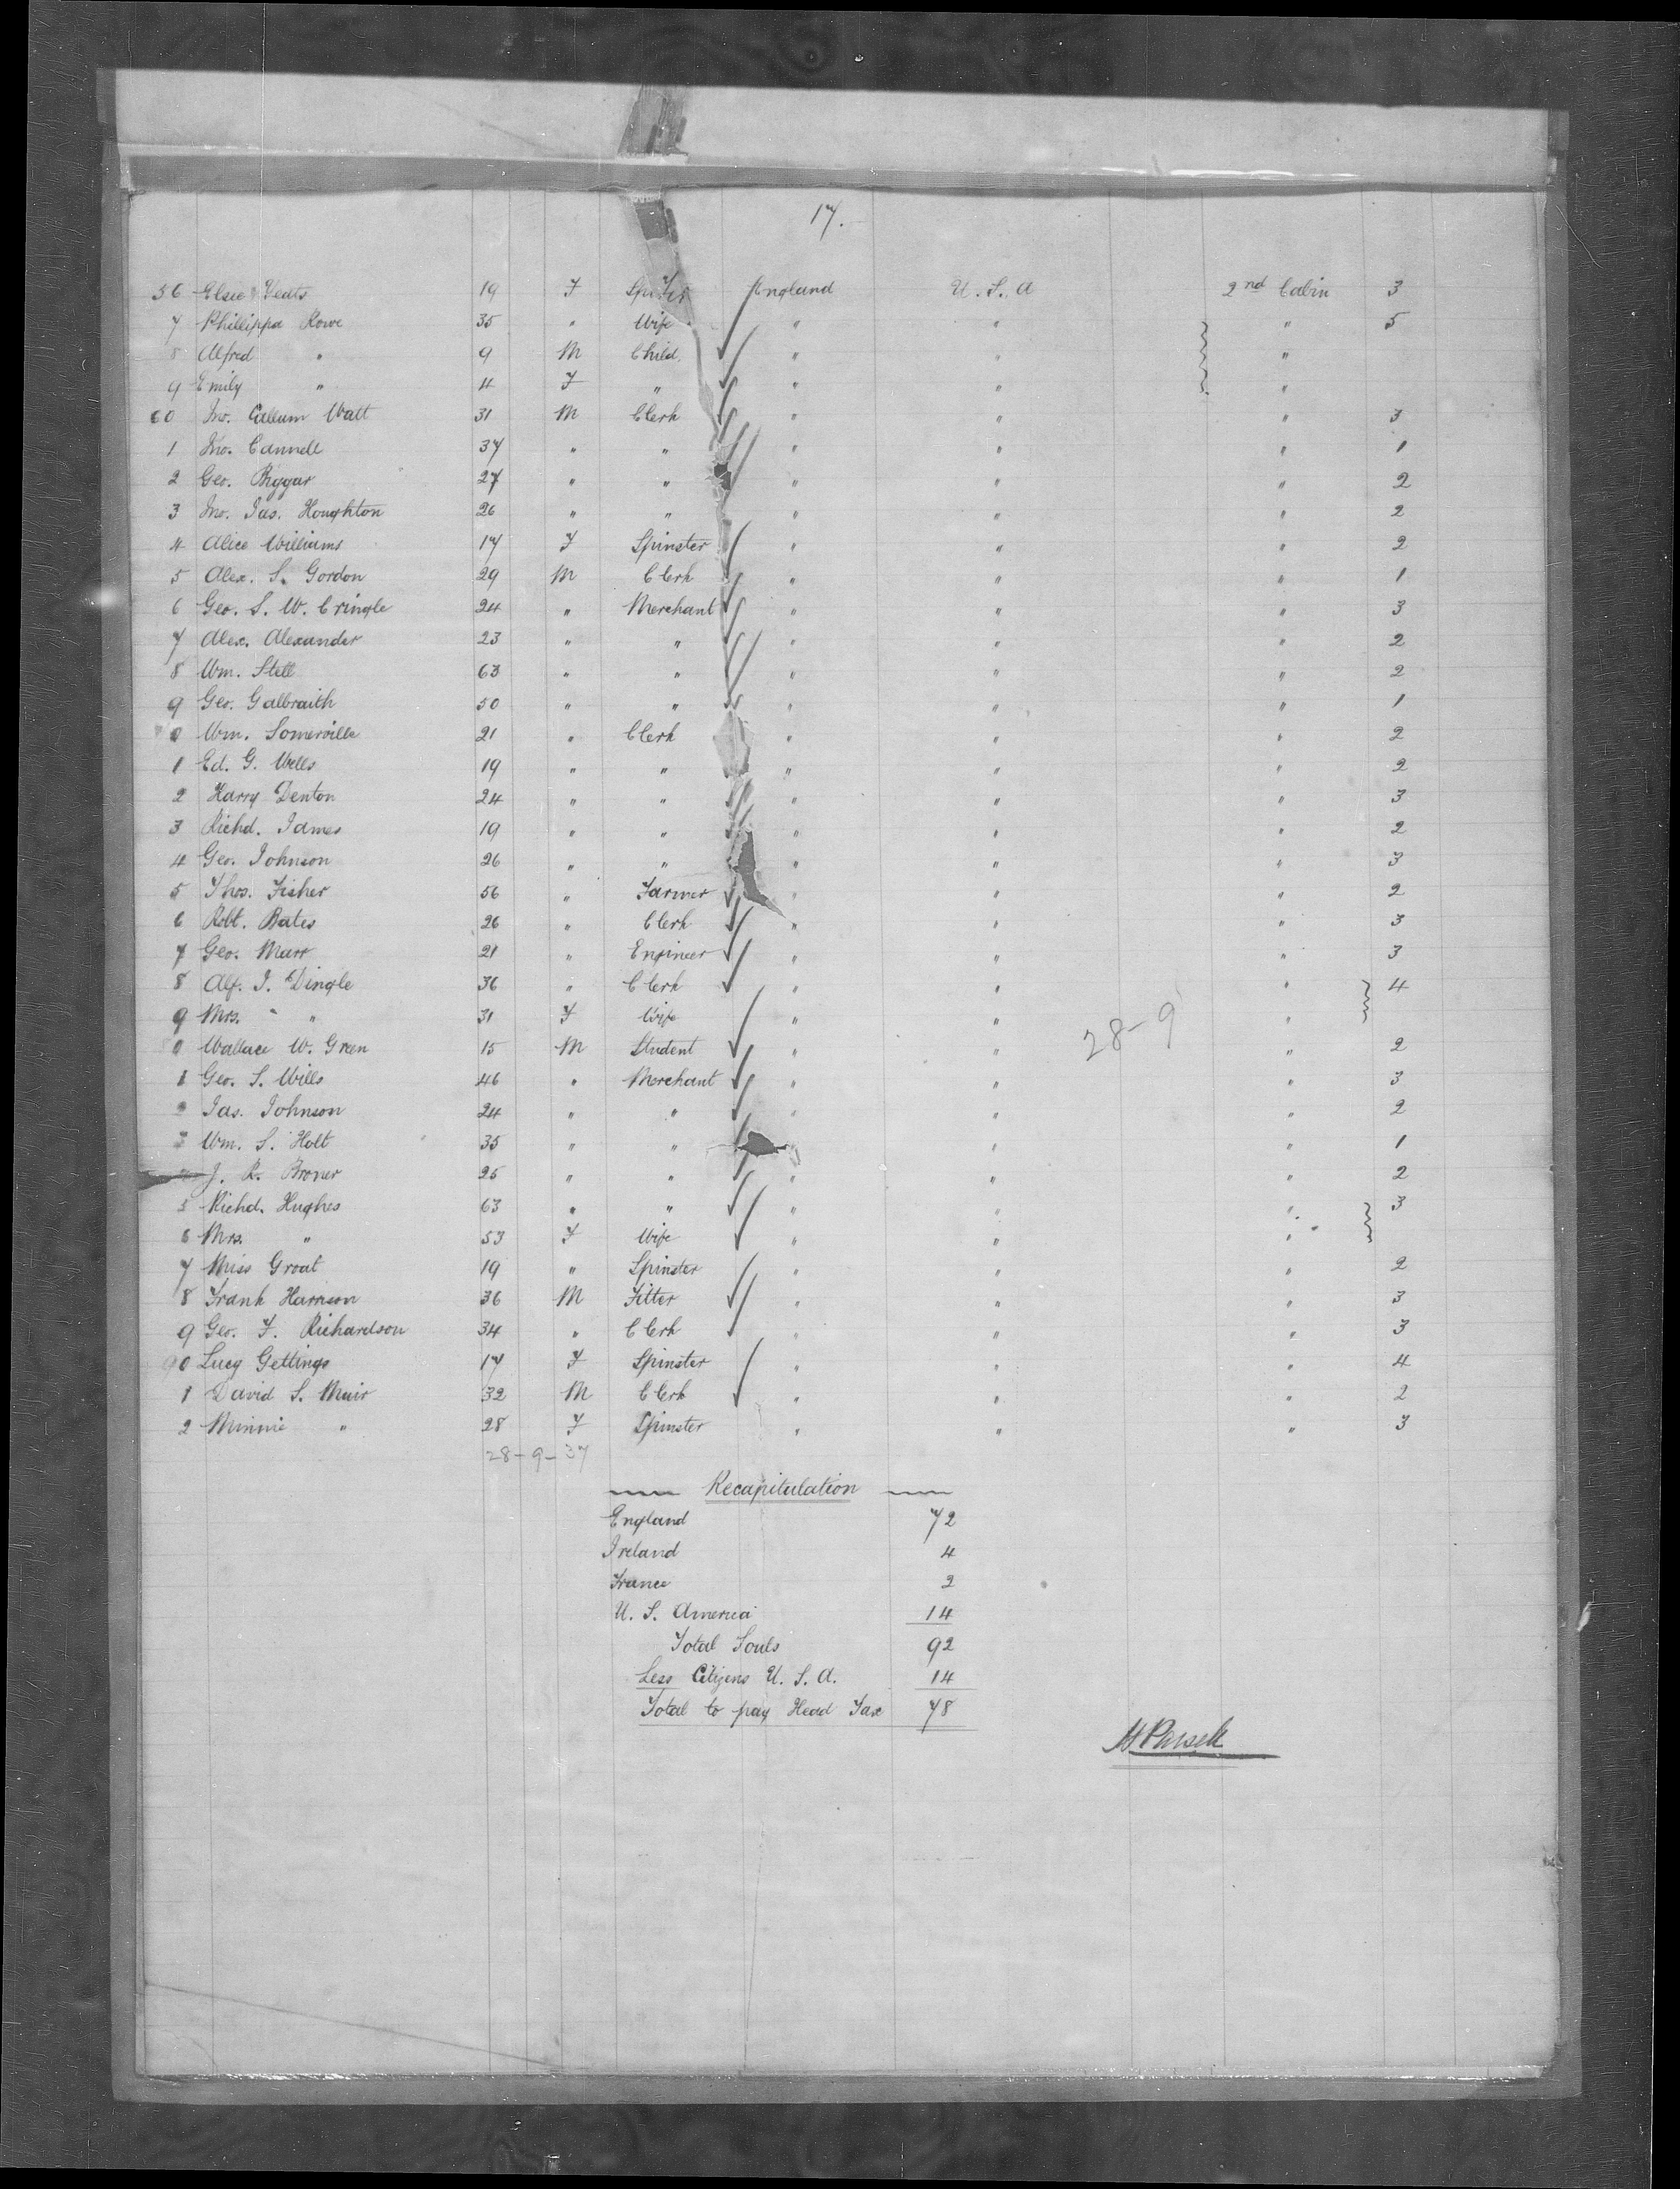 17.
56 Elsie Yeats 19 F Spinster England U. S. A 2nd Cabin 3
7 Phillippa Rowe 35 " Wife " " " 5
8 Alfred " 9 M Child " " "
9 Emily " 4 F " " " "
60 Jno. Callum Watt 31 M Clerk " " " 3
1 Jno. Cannell 37 " " " " " 1
2 Geo. Biggar 27 " " " " " 2
3 Jno. Jas. Houghton 26 " " " " " 2
4 Alice Williams 17 F Spinster " " " 2
5 Alex. S. Gordon 29 M Clerk " " " 1
6 Geo. S. W. Cringle 24 " Merchant " " " 3
7 Alex. Alexander 23 " " " " " 2
8 Wm. Stell 63 " " " " " 2
9 Geo. Galbraith 50 " " " " " 1
0 Wm. Somerville 21 " Clerk " " " 2
1 Ed. G. Wells 19 " " " " " 2
2 Harry Denton 24 " " " " " 3
3 Richd. James 19 " " " " " 2
4 Geo. Johnson 26 " " " " " 3
5 Thos. Fisher 56 " Farmer " " " 2
6 Robt. Bates 26 " Clerk " " " 3
7 Geo. Marr 21 " Engineer " " " 3
8 Alf. J. Dingle 36 " Clerk " " " 4
9 Mrs. " " 31 F Wife " " "
28-9
0 Wallace W. Green 15 M Student " " " 2
1 Geo. S. Wills 46 " Merchant " " " 3
2 Jas. Johnson 24 " " " " " 2
3 Wm. S. Holt 35 " " " " 1
J. R. Broner 25 " " " " " 2
5 Richd. Hughes 63 " " " " " 3
6 Mrs. " 53 F Wife " " "
7 Miss Groat 19 " Spinster " " " 2
8 Frank Harrison 36 M Fitter " " " 3
9 Geo. F. Richardson 34 " Clerk " " " 3
90 Lucy Gettings 17 F Spinster " " " 4
1 David S. Muir 32 M Clerk " " " 2
2 Minnie " 28 F Spinster " " " 3
28-9-37
Recapitulation
England 72
Ireland 4
France 2
U. S. America 14
Total Souls 92
Less Citizens U. S. A. 14
Total to pay Head Tax 78